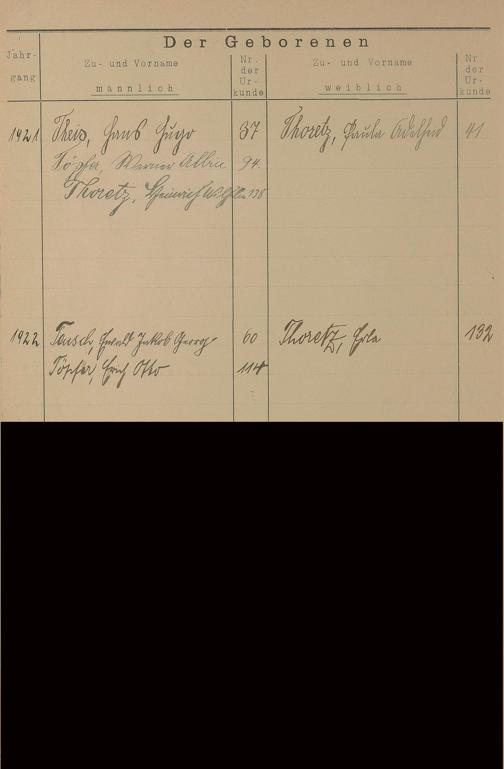 Der Geborenen
Jahr-
gang
Zu- und Vorname
männlich
Nr.
der
Ur-
kunde
Zu- und Vorname
weiblich
Nr.
der
Ur-
kunde
1921 Theis, Hans Hugo 37 Thoretz, Paula Adelheid 41
Töpfer, Werner Albin 94.
Thoretz, Heinrich 138
1922 Teusch, Ewald Jakob Georg 60 Thoretz, Erla 132
Töpfer, Erich Otto 114